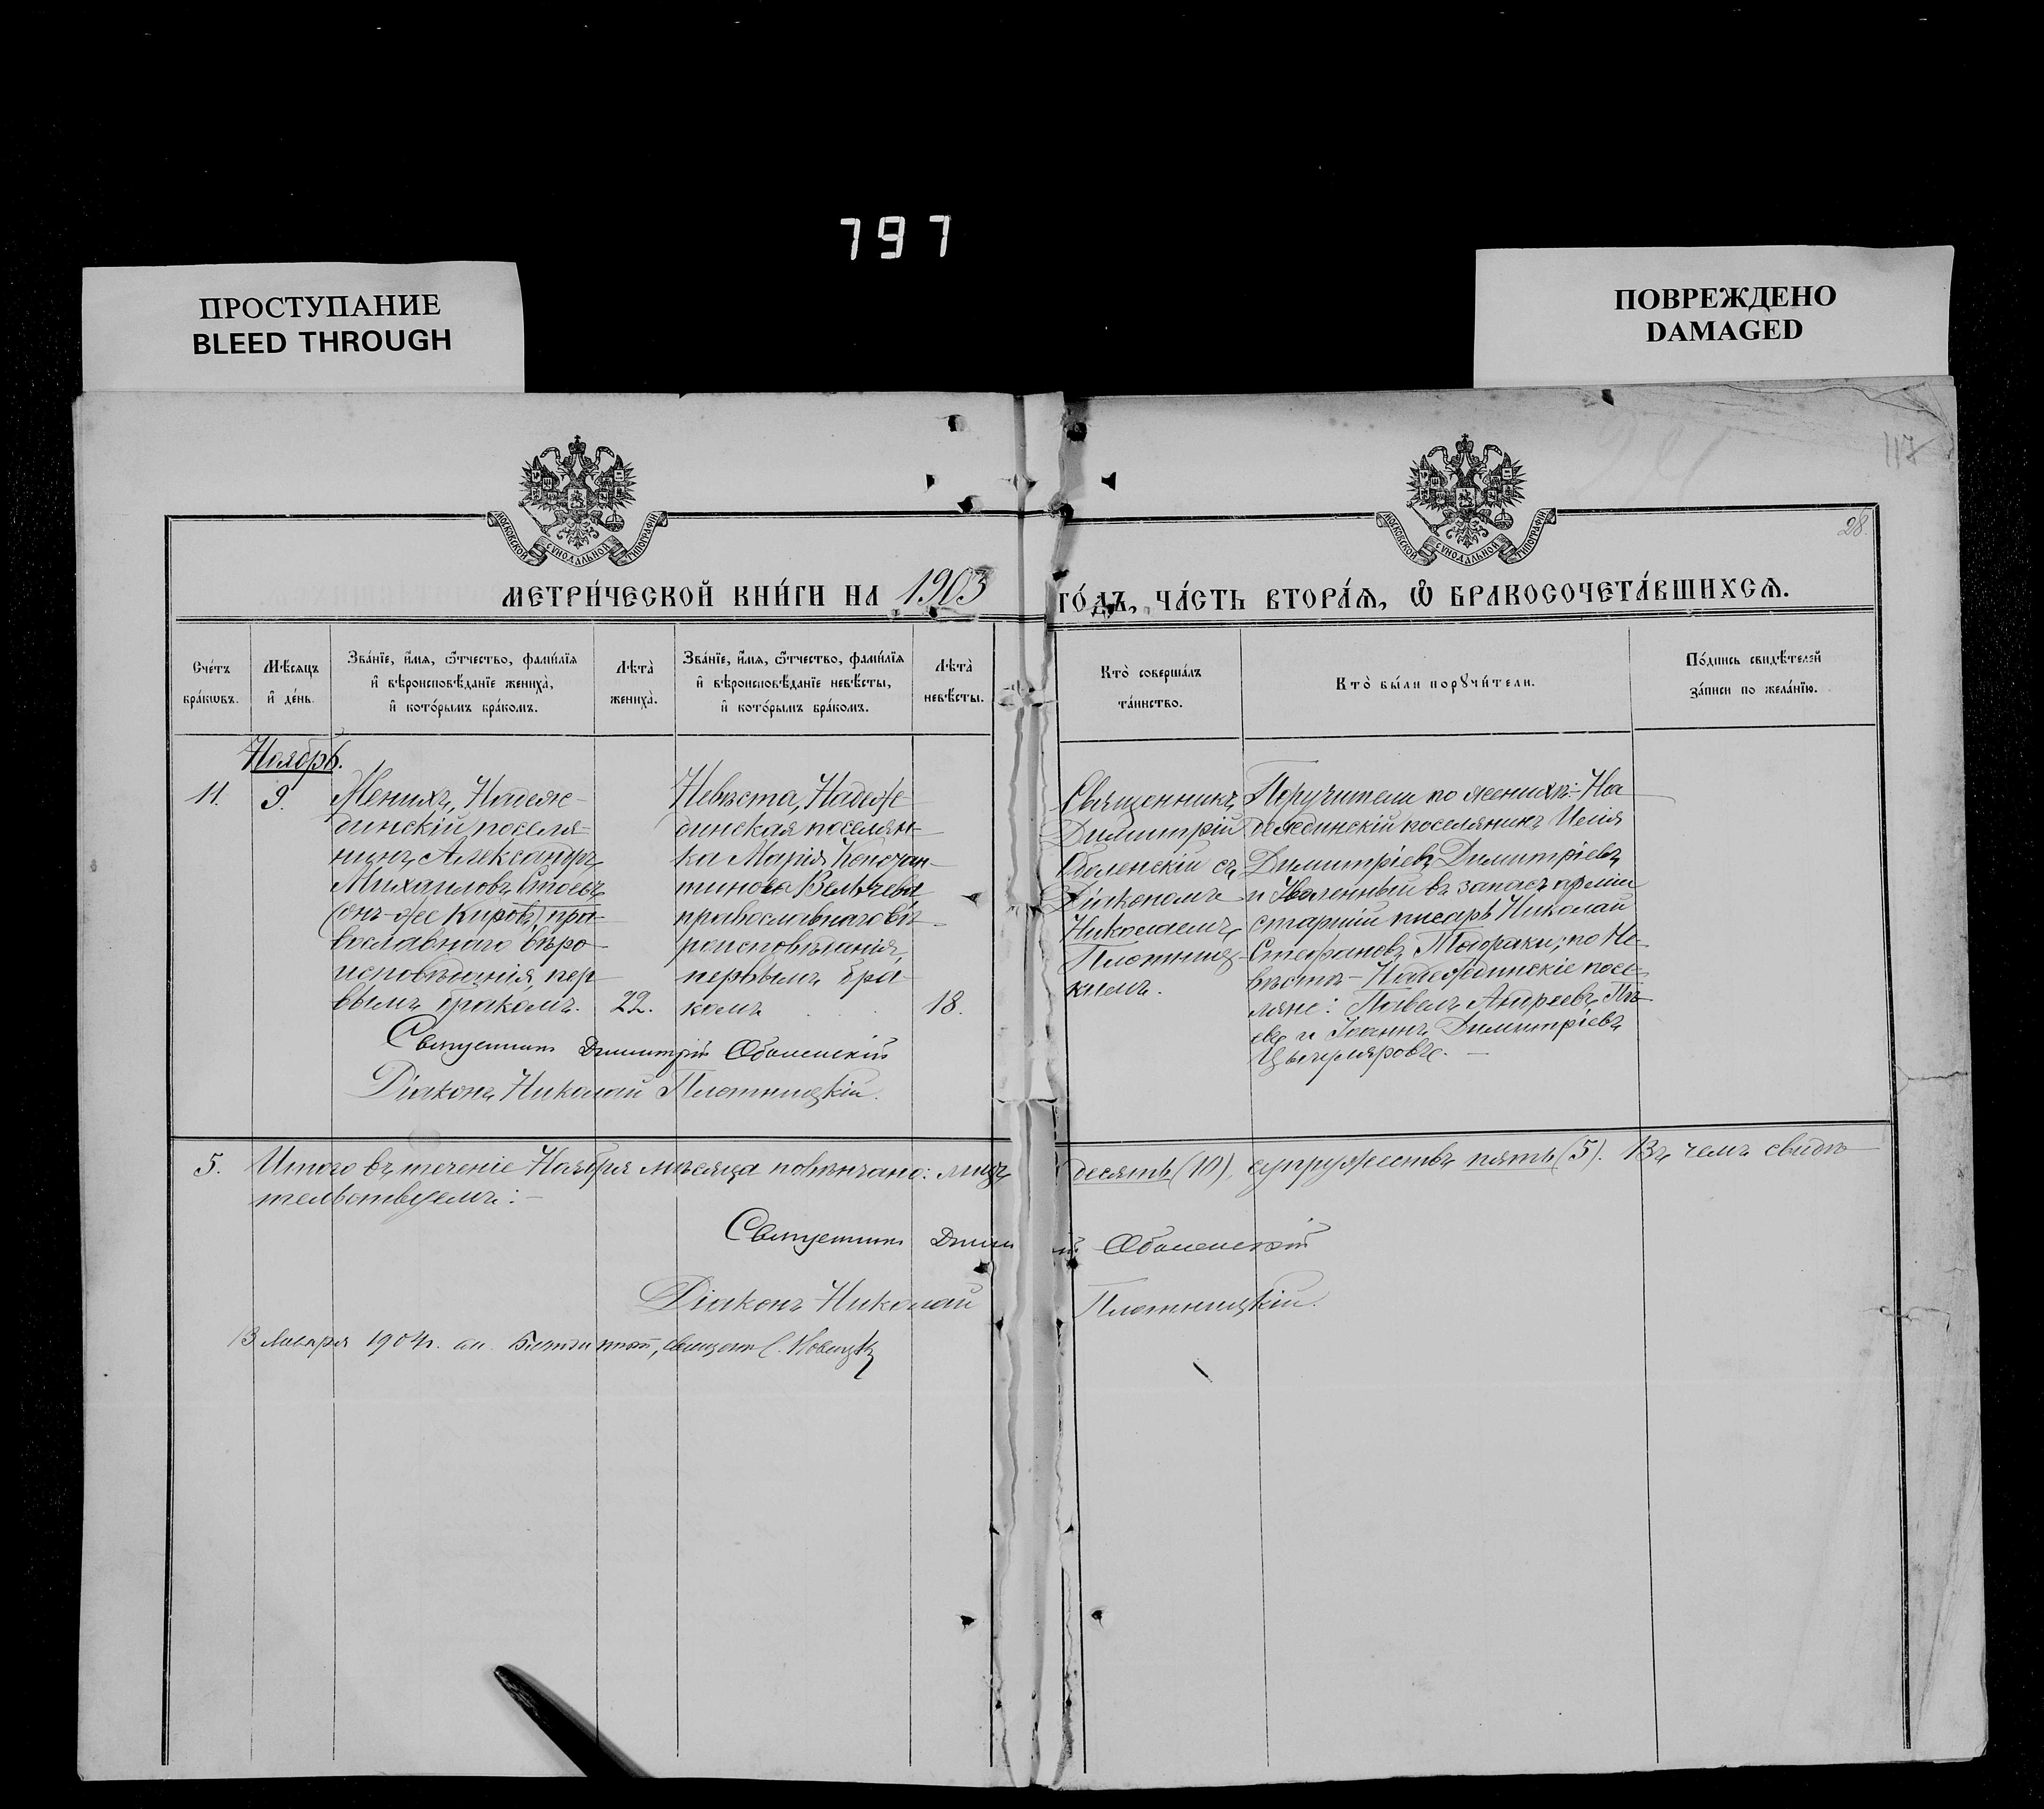 797
ПРОСТУПАНИЕ
BLEED THROUGH
ПОВРЕЖДЕНО
DAMAGED
117
28.
МОСКОВСКОЙ СѴНОДАЛЬНОЙ ТИПОГРАФІИ
МОСКОВСКОЙ СѴНОДАЛЬНОЙ ТИПОГРАФІИ
МЕТРИ́ЧЕСКОЙ КНИ́ГИ НА 1903 ГО́ДЪ, ЧА́СТЬ ВТОРА́Ѧ, Ѡ҆ БРАКОСОЧЕТА́ВШИХСѦ.
Сче́тъ
бра́кѡвъ.
Мѣ́сяцъ
и҆ де́нь.
Зва́нїе, и҆́мѧ, ѻ҆́тчество, фамі́лїѧ
и҆ вѣроисповѣ́данїе жениха̀,
и҆ кото́рымъ бра́комъ.
Лѣ́та
жениха̀.
Зва́нїе, и҆́мѧ, ѻ҆́тчество, фамі́лїѧ
и҆ вѣроисповѣ́данїе невѣ́сты,
и҆ кото́рымъ бра́комъ.
Лѣ́та
невѣ́сты.
Кто̀ соверша́лъ
та́инство.
Кто̀ бы́ли порꙋчи́тели.
По́дпись свидѣ́телей
за́писи по жела́нїю.
Ноябрь.
11.
9.
Женихъ, Надеж-
динскій поселя-
нинъ, Александръ
Михаиловъ Стоевъ
(онъ-же Кировъ) пра-
вославнаго вѣро-
исповѣданія, пер-
вымъ бракомъ.
22.
Невѣста, Надеж-
динская поселян-
ка Марія Констан-
тинова Велчева
православнаго вѣ-
роисповѣданія,
первымъ бра-
комъ
18.
Священникъ
Димитрій
Оболенскій съ
Діакономъ
Николаемъ
Плотниц-
кимъ.
Поручители по женихѣ:- На-
деждинскій поселянинъ Илія
Димитріевъ Димитріевъ
и Уволенный въ запасъ арміи
старшій писарь Николай
Стефановъ; по Не-
вѣстѣ - Надеждинскіе посе-
ляне: Павелъ Андреевъ
и Іоаннъ Димитріевъ
Священникъ Димитрій Оболенскій
Діаконъ Николай Плотницкій.
5. Итого въ теченіе Ноября мѣсяца повѣнчано: лицъ десять (10), супружествъ пять (5). Въ чемъ свидѣ-
тельствуемъ:-
Священникъ Дими й Оболенскій
Діаконъ Николай Плотницкій.
Января 1904 г.